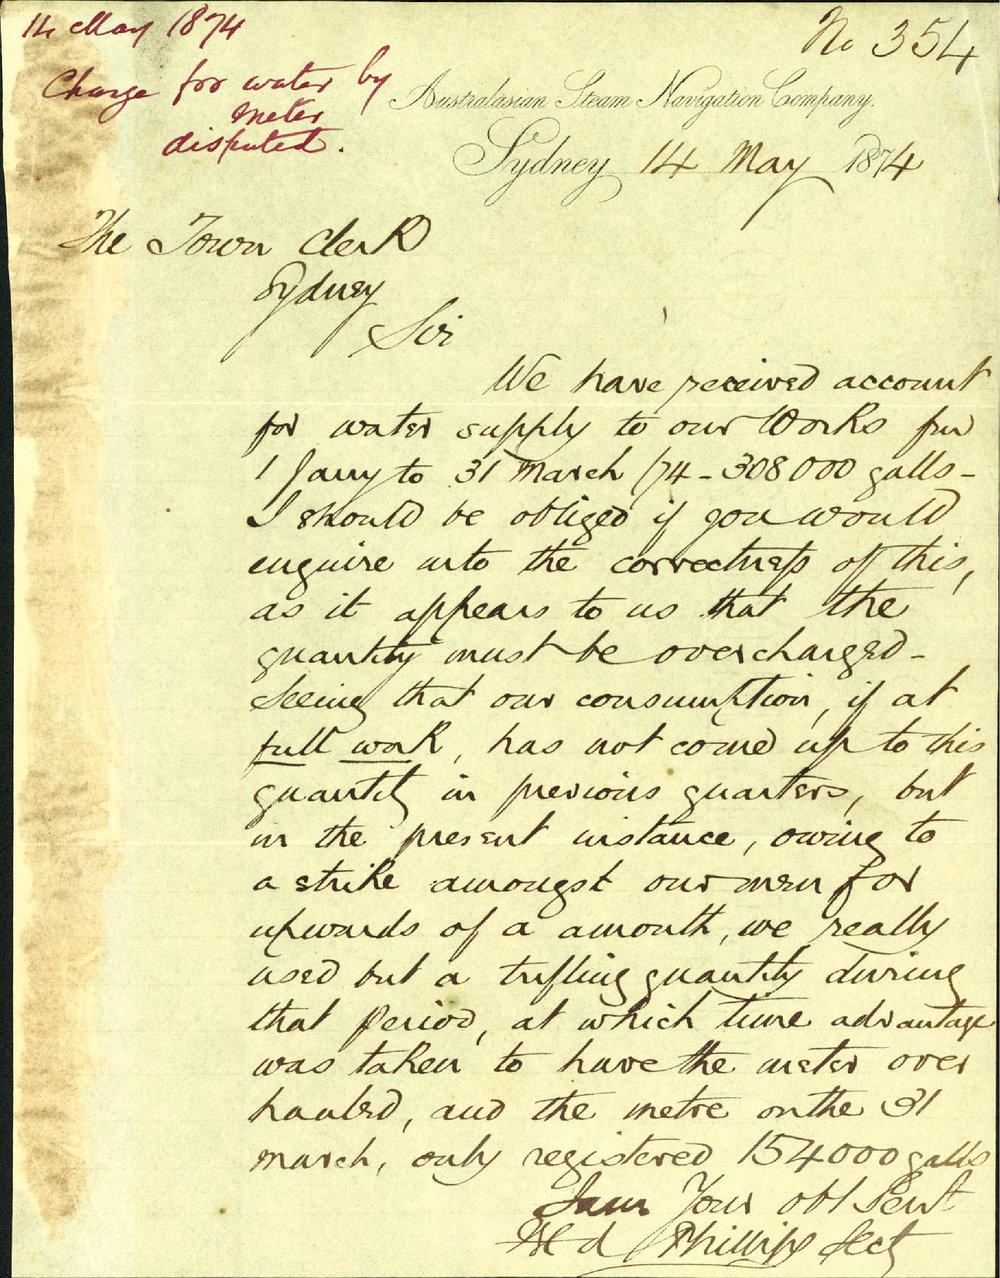 14 May 1874
No 354
Charge for water by
meter
disputed.
Australasian Steam Navigation Company.
Sydney 14 May 1874
The Town Clerk
Sydney
Sir
We have received account
for water supply to our Works for
1 Jany to 31 March /74 - 308000 galls -
I should be obliged if you would
enquire into the correctness of this,
as it appears to us that the
quantity must be overcharged -
Seeing that our consumption, if at
full work, has not come up to this
quantity in previous quarters, but
in the present instance, owing to
a strike amongst our men for
upwards of a month, we really
used but a trifling quantity during
that period, at which time advantage
was taken to have the meter over
hauled, and the metre on the 31
March, only registered 154000 galls
I am Your obt Servt
Phillips Secty